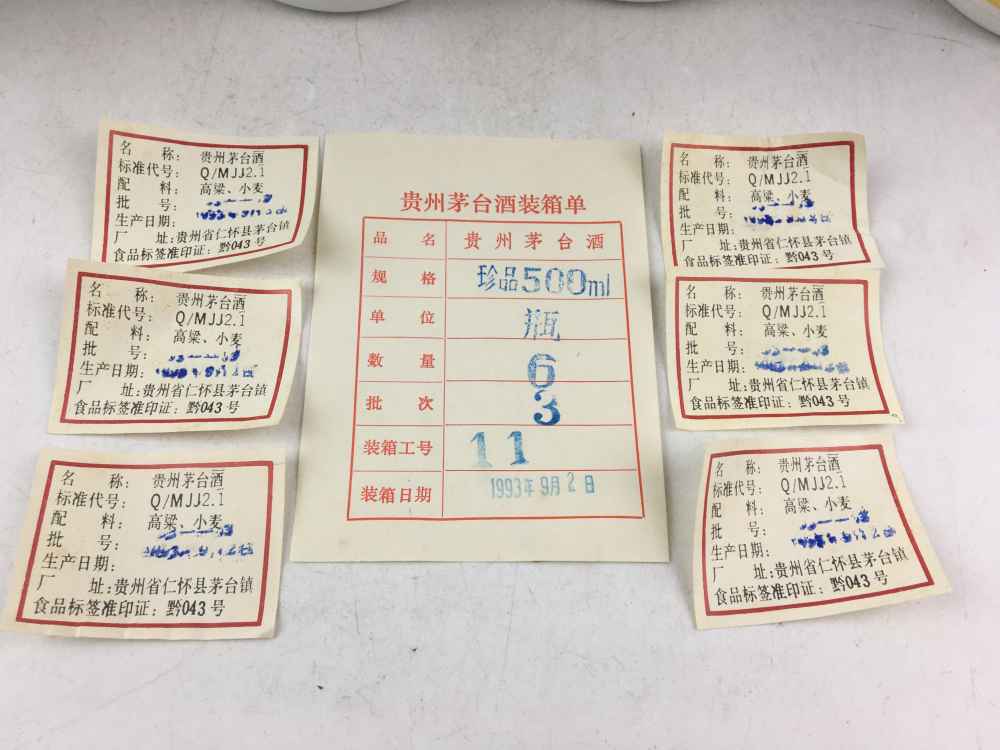 名 称: 贵州茅台酒
标准代号: Q/MJJ2.1
配 料: 高粱、小麦
批 号:
生产日期:
厂 址:贵州省仁怀县茅台镇
食品标签准印证: 黔043号
名 称: 贵州茅台酒
标准代号: Q/MJJ2.1
配 料: 高粱、小麦
批 号:
生产日期:
厂 址:贵州省仁怀县茅台镇
食品标签准印证: 黔043号
名 称: 贵州茅台酒
标准代号: Q/MJJ2.1
配 料: 高粱、小麦
批 号:
生产日期:
厂 址:贵州省仁怀县茅台镇
食品标签准印证: 黔043号
贵州茅台酒装箱单
品 名 贵州茅台酒
规 格 珍品500ml
单 位 瓶
数 量 6
批 次 3
装箱工号 11
装箱日期 1993年9月2日
名 称: 贵州茅台酒
标准代号: Q/MJJ2.1
配 料: 高粱、小麦
批 号:
生产日期:
厂 址:贵州省仁怀县茅台镇
食品标签准印证: 黔043号
名 称: 贵州茅台酒
标准代号: Q/MJJ2.1
配 料: 高粱、小麦
批 号:
生产日期:
厂 址:贵州省仁怀县茅台镇
食品标签准印证: 黔043号
名 称: 贵州茅台酒
标准代号: Q/MJJ2.1
配 料: 高粱、小麦
批 号:
生产日期:
厂 址:贵州省仁怀县茅台镇
食品标签准印证: 黔043号